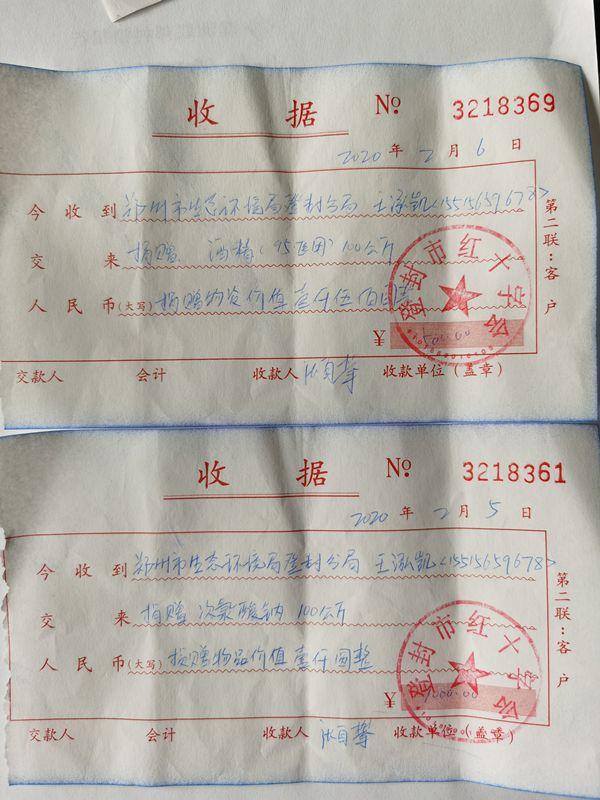 收据 № 3218369
2020 年 2 月 6 日
今收到 郑州市生态环境局登封分局 王泓凯<15515659678>
交来 捐赠 酒精(95医用)100公斤
人民币(大写) 捐赠物资价值壹仟伍佰圆整
¥ 1500.00
登封市红十字会
交款人 会计 收款人 收款单位(盖章)
第二联:客户
收据 № 3218361
2020 年 2 月 5 日
今收到 郑州市生态环境局登封分局 王泓凯<15515659678>
交来 捐赠 次氯酸钠 100公斤
人民币(大写) 捐赠物品价值壹仟圆整
¥ 1000.00
登封市红十字会
交款人 会计 收款人 收款单位(盖章)
第二联:客户